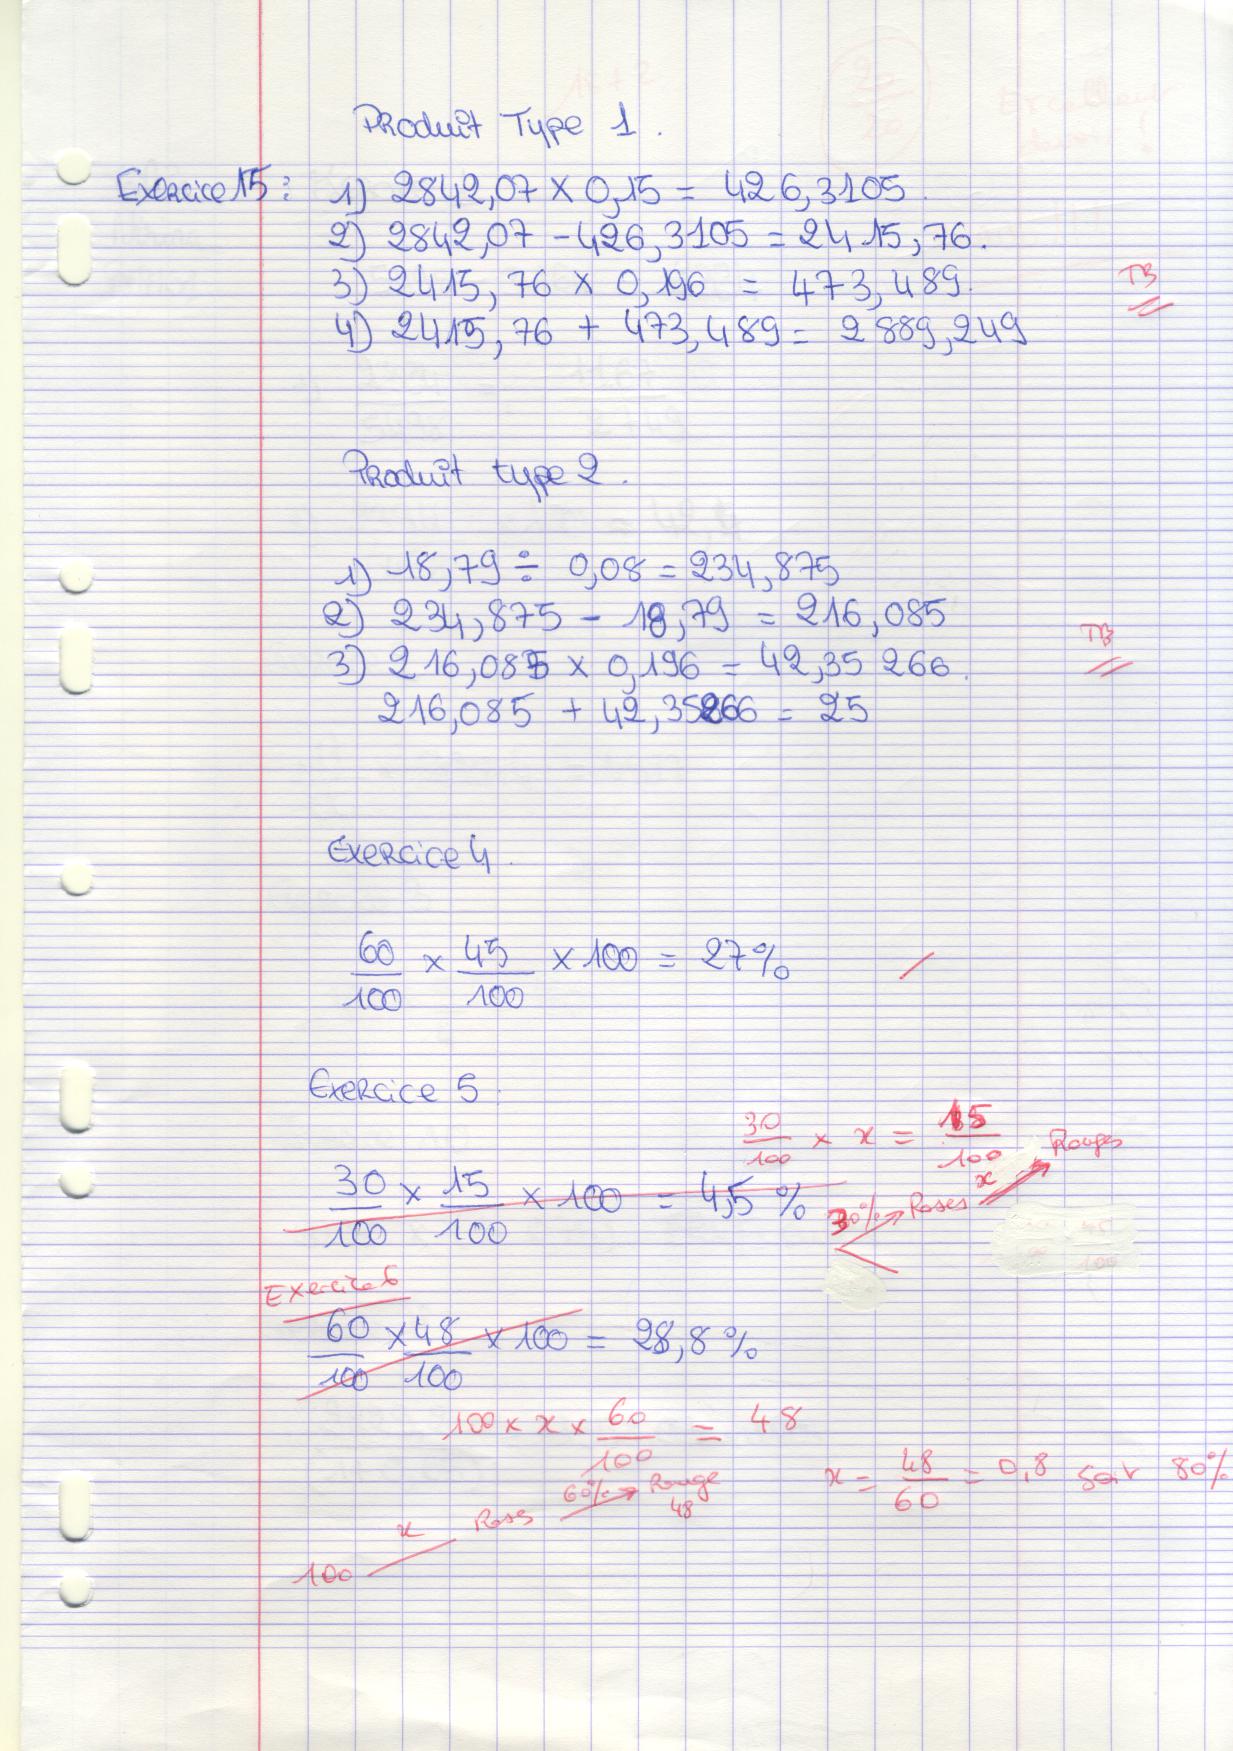 Produit Type 1.
Exercice 15 : 1) 2842,07 × 0,15 = 426,3105.
2) 2842,07 - 426,3105 = 2415,76.
3) 2415,76 × 0,196 = 473,489.
TB
4) 2415,76 + 473,489 = 2889,249
Produit type 2.
1) 18,79 ÷ 0,08 = 234,875
2) 234,875 - 18,79 = 216,085
TB
3) 216,085 × 0,196 = 42,35 266.
216,085 + 42,35266 = 25
Exercice 4.
60/100 × 45/100 × 100 = 27%
Exercice 5.
30/100 × x = 15/100
30/100 × 15/100 × 100 = 4,5 %
30% Roses x Rouges
Exercice 6
60/100 × 48/100 × 100 = 28,8 %
100 × x × 60/100 = 48
x = 48/60 = 0,8 soit 80%
100 x Roses 60% Rouge 48